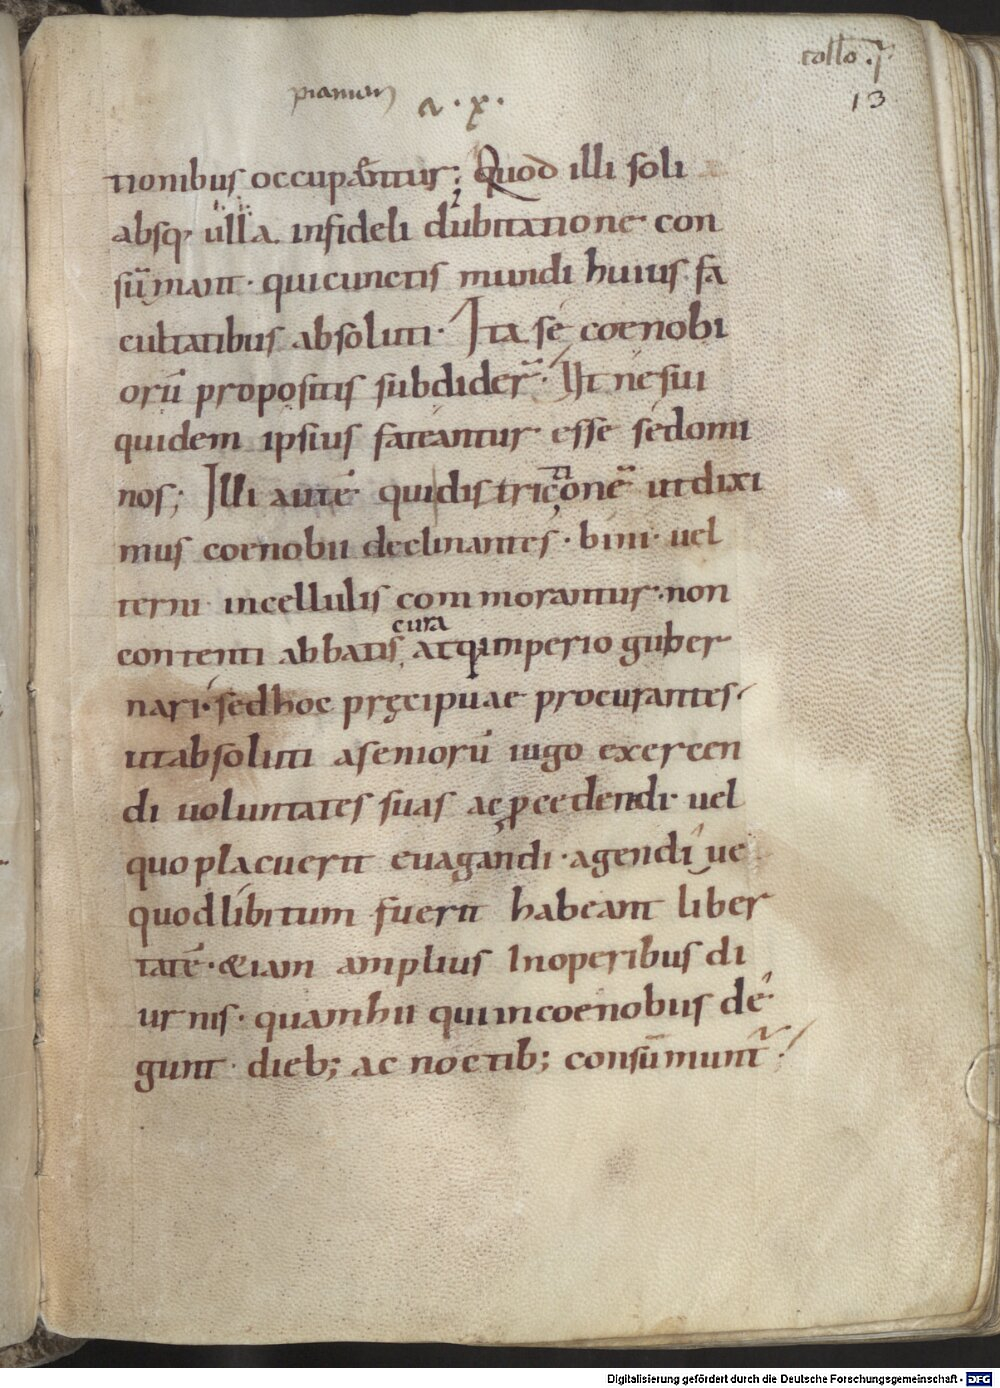 collo
13
piamon
a · x ·
tionibus occupantur; Quod illi soli
absq· ulla infideli dubitatione· con
sūmant· qui cunctis mundi huius fa
cultatibus absoluti· Ita se coenobi
orū propositis subdider̄· Ut ne sui
quidem ipsius fateantur· esse se domi
nos; Illi autē quidistrictionē ut dixi
mus coenobii declinantes· bini· uel
terni incellulis commorantur· non
cura
contenti abbatis, atq· imperio guber
nari· sed hoc pręcipuae procurantes·
ut absoluti a seniorū iugo exercen
di uoluntates suas ac pcedendi· uel
quo placuerit euagandi· agendi ue
quod libitum fuerit habeant liber
tatē· &iam amplius In operibus di
urnis· quam hii qui in coenobiis de
gunt· dieb; ac noctib; consūmunt·
Digitalisierung gefördert durch die Deutsche Forschungsgemeinschaft - DFG